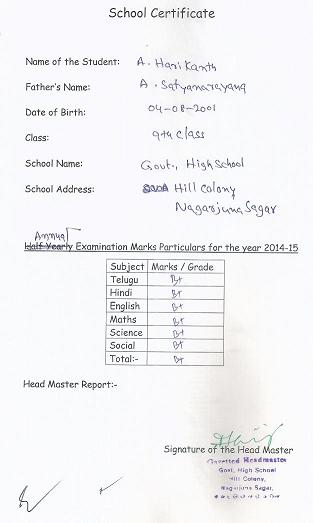 School Certificate
Name of the Student: A. Hari Kanth
Father's Name: A. Satyanarayana
Date of Birth: 04-08-2001
Class: 9th class
School Name: Govt., High School
School Address: Hill Colony
Nagarjuna Sagar
Annual
Half Yearly Examination Marks Particulars for the year 2014-15
Subject Marks / Grade
Telugu B+
Hindi B+
English B+
Maths B+
Science B+
Social B+
Total:- B+
Head Master Report:-
Signature of the Head Master
Gazetted Headmaster
Govt. High School
Hill Colony,
Nagarjuna Sagar,